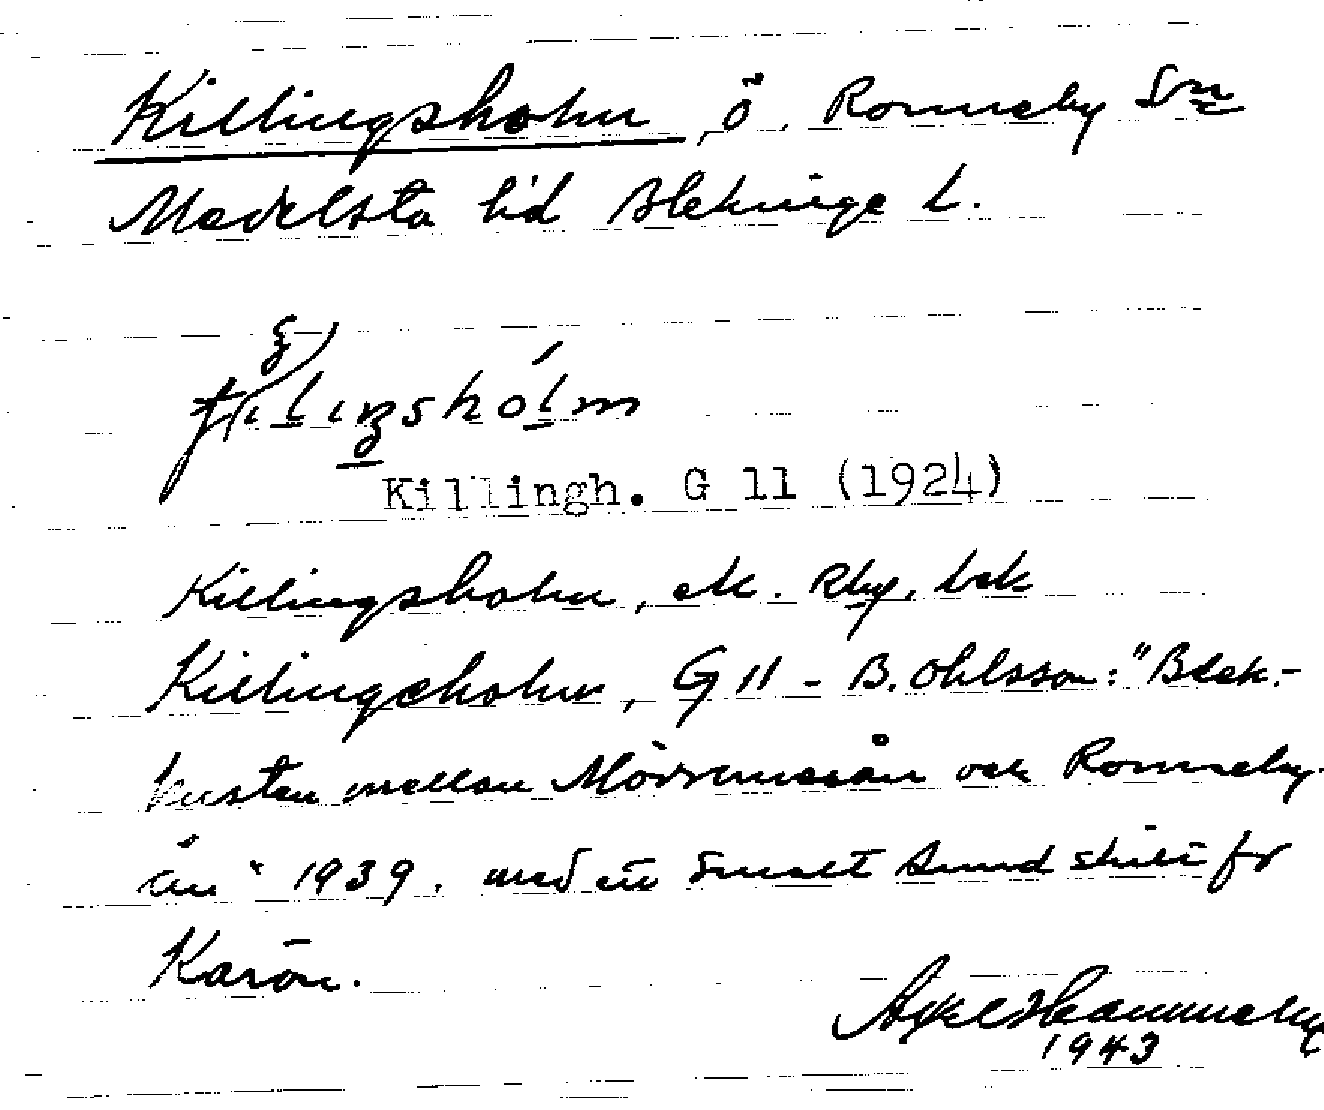 Killingsholm, ö. Ronneby Sn
Medelsta hd Blekinge l.
Killingh. G 11 (1924)
Killingsholm, ek. Rby, bek
Killingsholm, G 11 - B. Ohlsson: "Blek.-
kusten mellan Mörrumsån och Ronneby-
ån" 1939. med ett smalt sund skilt fr
Karön.
Axel Hammeby
1943